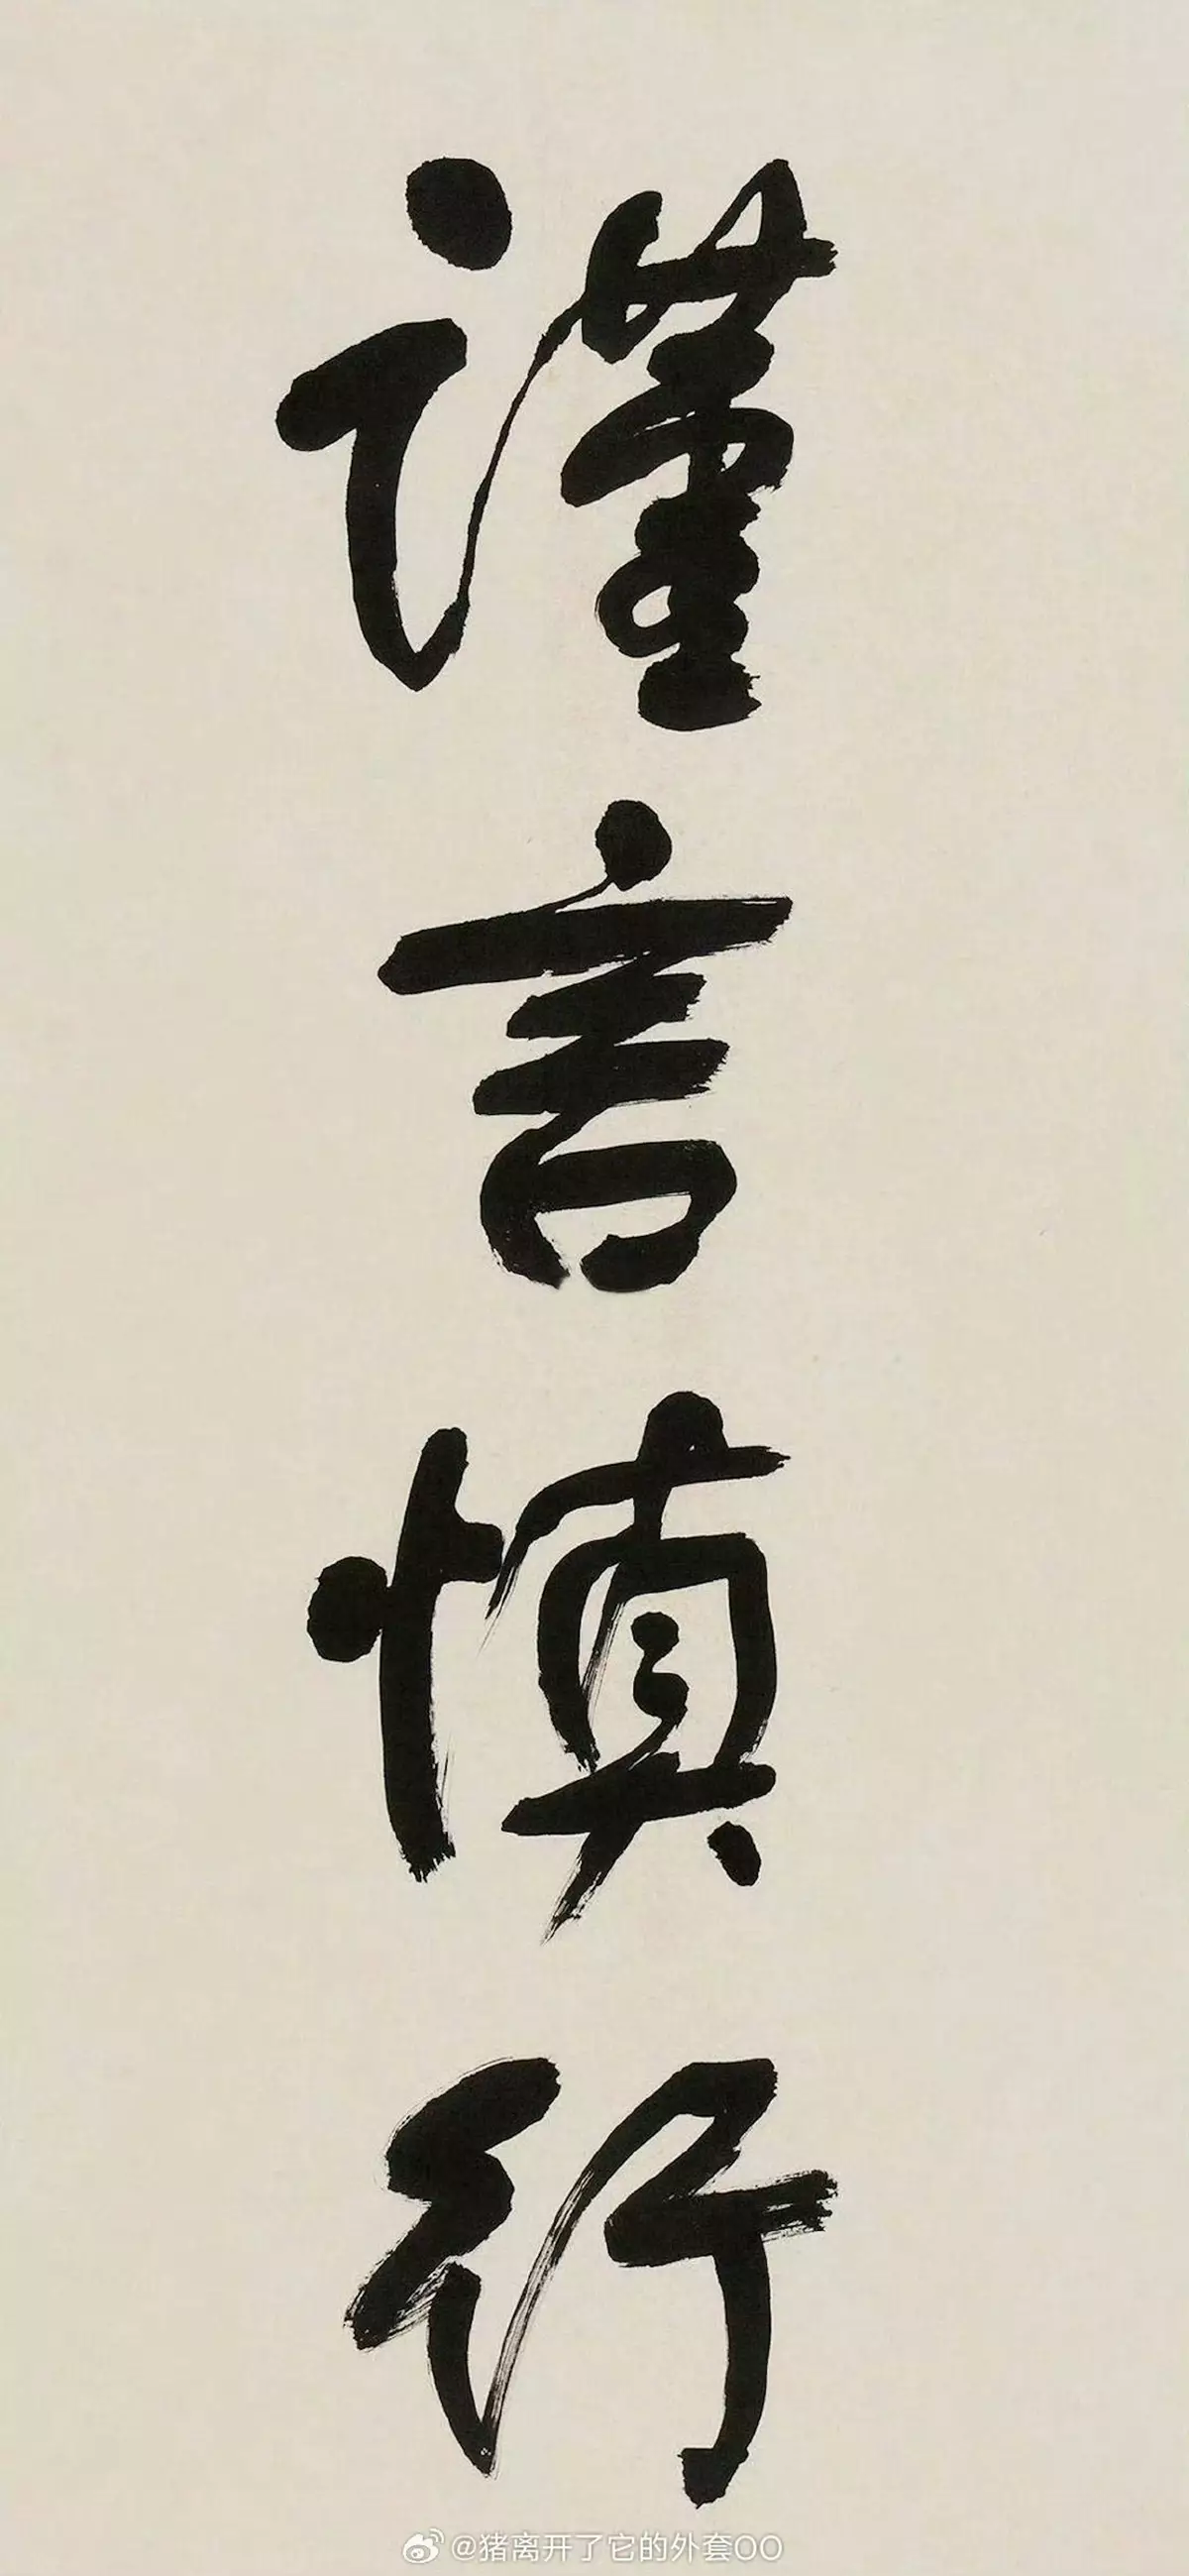 谨言慎行
@猪离开了它的外套OO